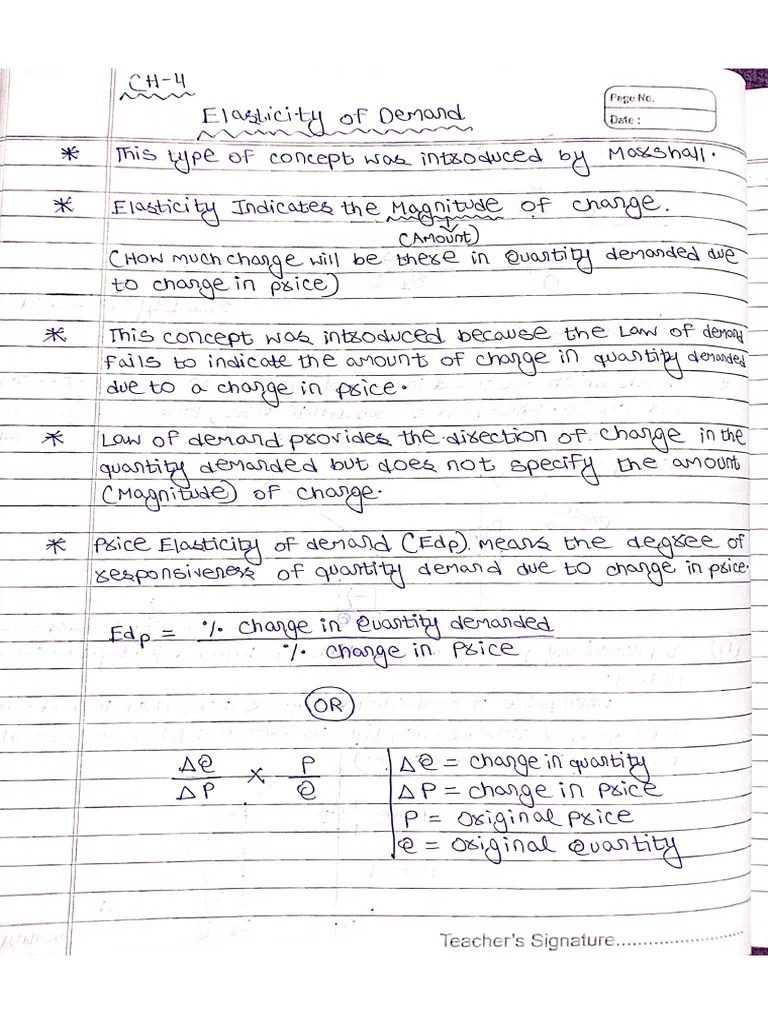 CH-4
Elasticity of Demand
Page No.
Date :
* This type of concept was introduced by Marshall.
* Elasticity Indicates the Magnitude of change.
(Amount)
(How much change will be there in Quantity demanded due
to change in price)
* This concept was introduced because the Law of demand
fails to indicate the amount of change in quantity demanded
due to a change in price.
* Law of demand provides the direction of change in the
quantity demanded but does not specify the amount
(Magnitude) of change.
* Price Elasticity of demand (Edp) means the degree of
responsiveness of quantity demand due to change in price.
Edp = % change in Quantity demanded
% change in Price
OR
ΔQ/ΔP × P/Q
ΔQ = change in quantity
ΔP = change in price
P = original price
Q = original Quantity
Teacher's Signature